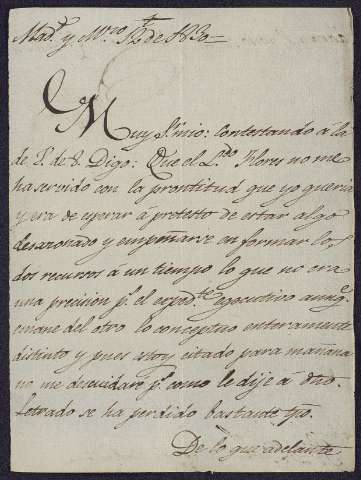 Mad.d y Mzo 12 de 1830=
Muy S.r mio: Contestando á la
de V. de 8. Digo: Que el L.do Flores no me
ha servido con la prontitud que yo queria
y era de esperar á pretesto de estar algo
desazonado y empeñarse en formar los
dos recursos á un tiempo lo que no era
una precision p.s el esped.te egecutivo aunq.e
emane del otro lo conceptuo enteramente
distinto y pues estoy citado para mañana
no me descuidare p.s como le dije á dho
Letrado se ha perdido bastante tpo.
De lo que adelante